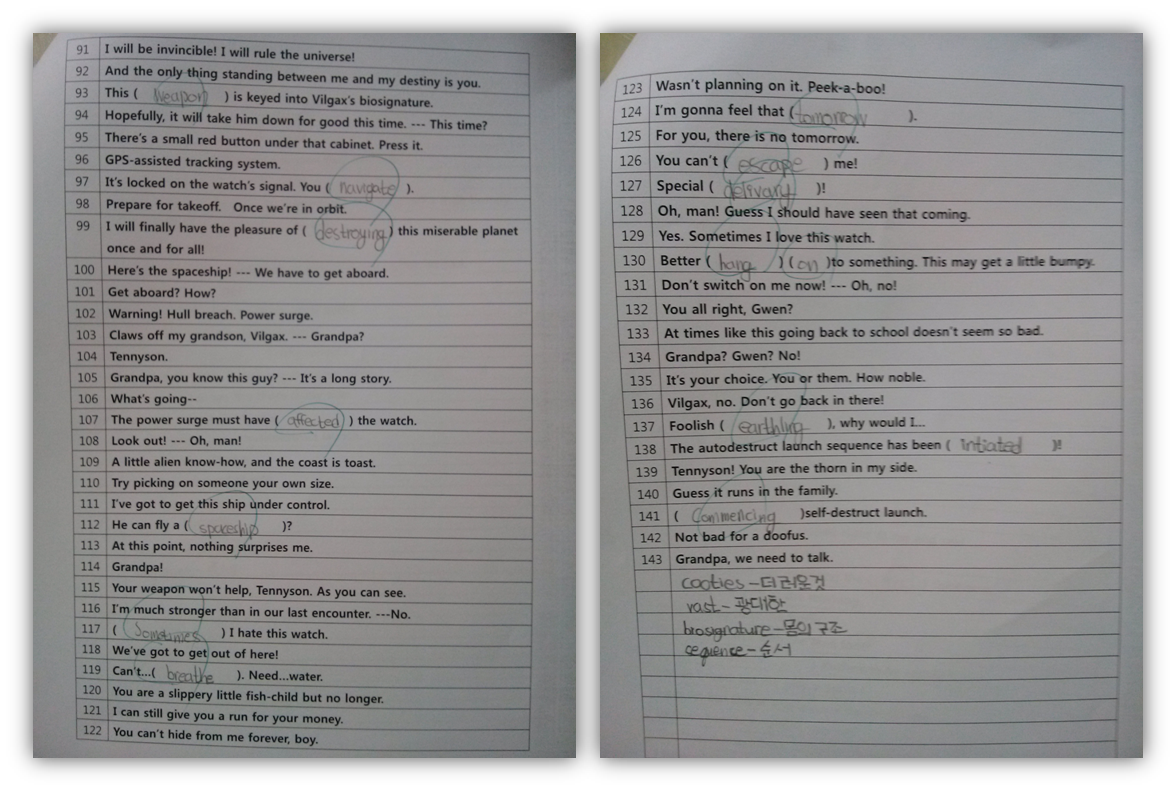 91 I will be invincible! I will rule the universe!
92 And the only thing standing between me and my destiny is you.
93 This ( Weapon ) is keyed into Vilgax's biosignature.
94 Hopefully, it will take him down for good this time. --- This time?
95 There's a small red button under that cabinet. Press it.
96 GPS-assisted tracking system.
97 It's locked on the watch's signal. You ( navigate ).
98 Prepare for takeoff. Once we're in orbit.
99 I will finally have the pleasure of ( destroying ) this miserable planet
once and for all!
100 Here's the spaceship! --- We have to get aboard.
101 Get aboard? How?
102 Warning! Hull breach. Power surge.
103 Claws off my grandson, Vilgax. --- Grandpa?
104 Tennyson.
105 Grandpa, you know this guy? --- It's a long story.
106 What's going--
107 The power surge must have ( affected ) the watch.
108 Look out! --- Oh, man!
109 A little alien know-how, and the coast is toast.
110 Try picking on someone your own size.
111 I've got to get this ship under control.
112 He can fly a ( spaceship )?
113 At this point, nothing surprises me.
114 Grandpa!
115 Your weapon won't help, Tennyson. As you can see.
116 I'm much stronger than in our last encounter. ---No.
117 ( Sometimes ) I hate this watch.
118 We've got to get out of here!
119 Can't...( breathe ). Need...water.
120 You are a slippery little fish-child but no longer.
121 I can still give you a run for your money.
122 You can't hide from me forever, boy.
123 Wasn't planning on it. Peek-a-boo!
124 I'm gonna feel that ( tomorrow ).
125 For you, there is no tomorrow.
126 You can't ( escape ) me!
127 Special ( delivary )!
128 Oh, man! Guess I should have seen that coming.
129 Yes. Sometimes I love this watch.
130 Better ( hang ) ( on )to something. This may get a little bumpy.
131 Don't switch on me now! --- Oh, no!
132 You all right, Gwen?
133 At times like this going back to school doesn't seem so bad.
134 Grandpa? Gwen? No!
135 It's your choice. You or them. How noble.
136 Vilgax, no. Don't go back in there!
137 Foolish ( earthling ), why would I...
138 The autodestruct launch sequence has been ( intiated )!
139 Tennyson! You are the thorn in my side.
140 Guess it runs in the family.
141 ( Commencing )self-destruct launch.
142 Not bad for a doofus.
143 Grandpa, we need to talk.
cooties-더러운것
vast-광대한
biosignature-몸의구조
cequence-순서